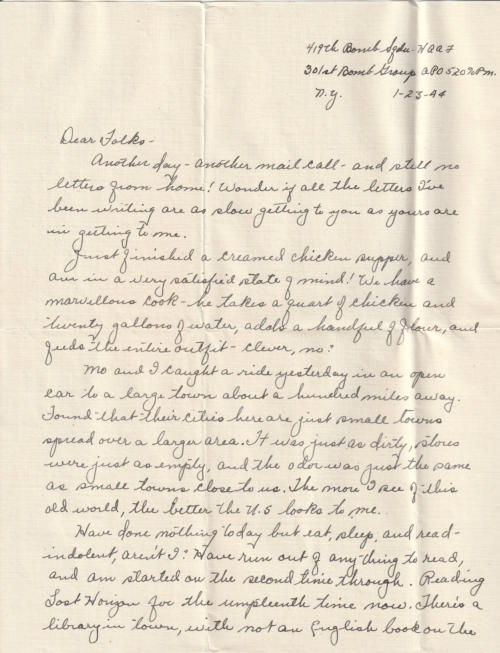 419th Bomb Sqdn. HAAF
301st Bomb Group APO 520 % P.m.
N.Y. 1-23-44
Dear Folks-
Another day - another mail call - and still no
letters from home! Wonder if all the letters I've
been writing are as slow getting to you as yours are
in getting to me.
Just finished a creamed chicken supper, and
am in a very satisfied state of mind! We have a
marvellous cook - he takes a quart of chicken and
twenty gallons of water, adds a handful of flour, and
feeds the entire outfit - clever, no?
Mo and I caught a ride yesterday in an open
car to a large town about a hundred miles away.
Found that their cities here are just small towns
spread over a larger area. It was just as dirty, stores
were just as empty, and the odor was just the same
as small towns close to us. The more I see of this
old world, the better the U.S looks to me.
Have done nothing today but eat, sleep, and read -
indolent, aren't I? Have run out of anything to read,
and am started on the second time through. Reading
Lost Horizon for the umpteenth time now. There's a
library in town, with not an English book on the